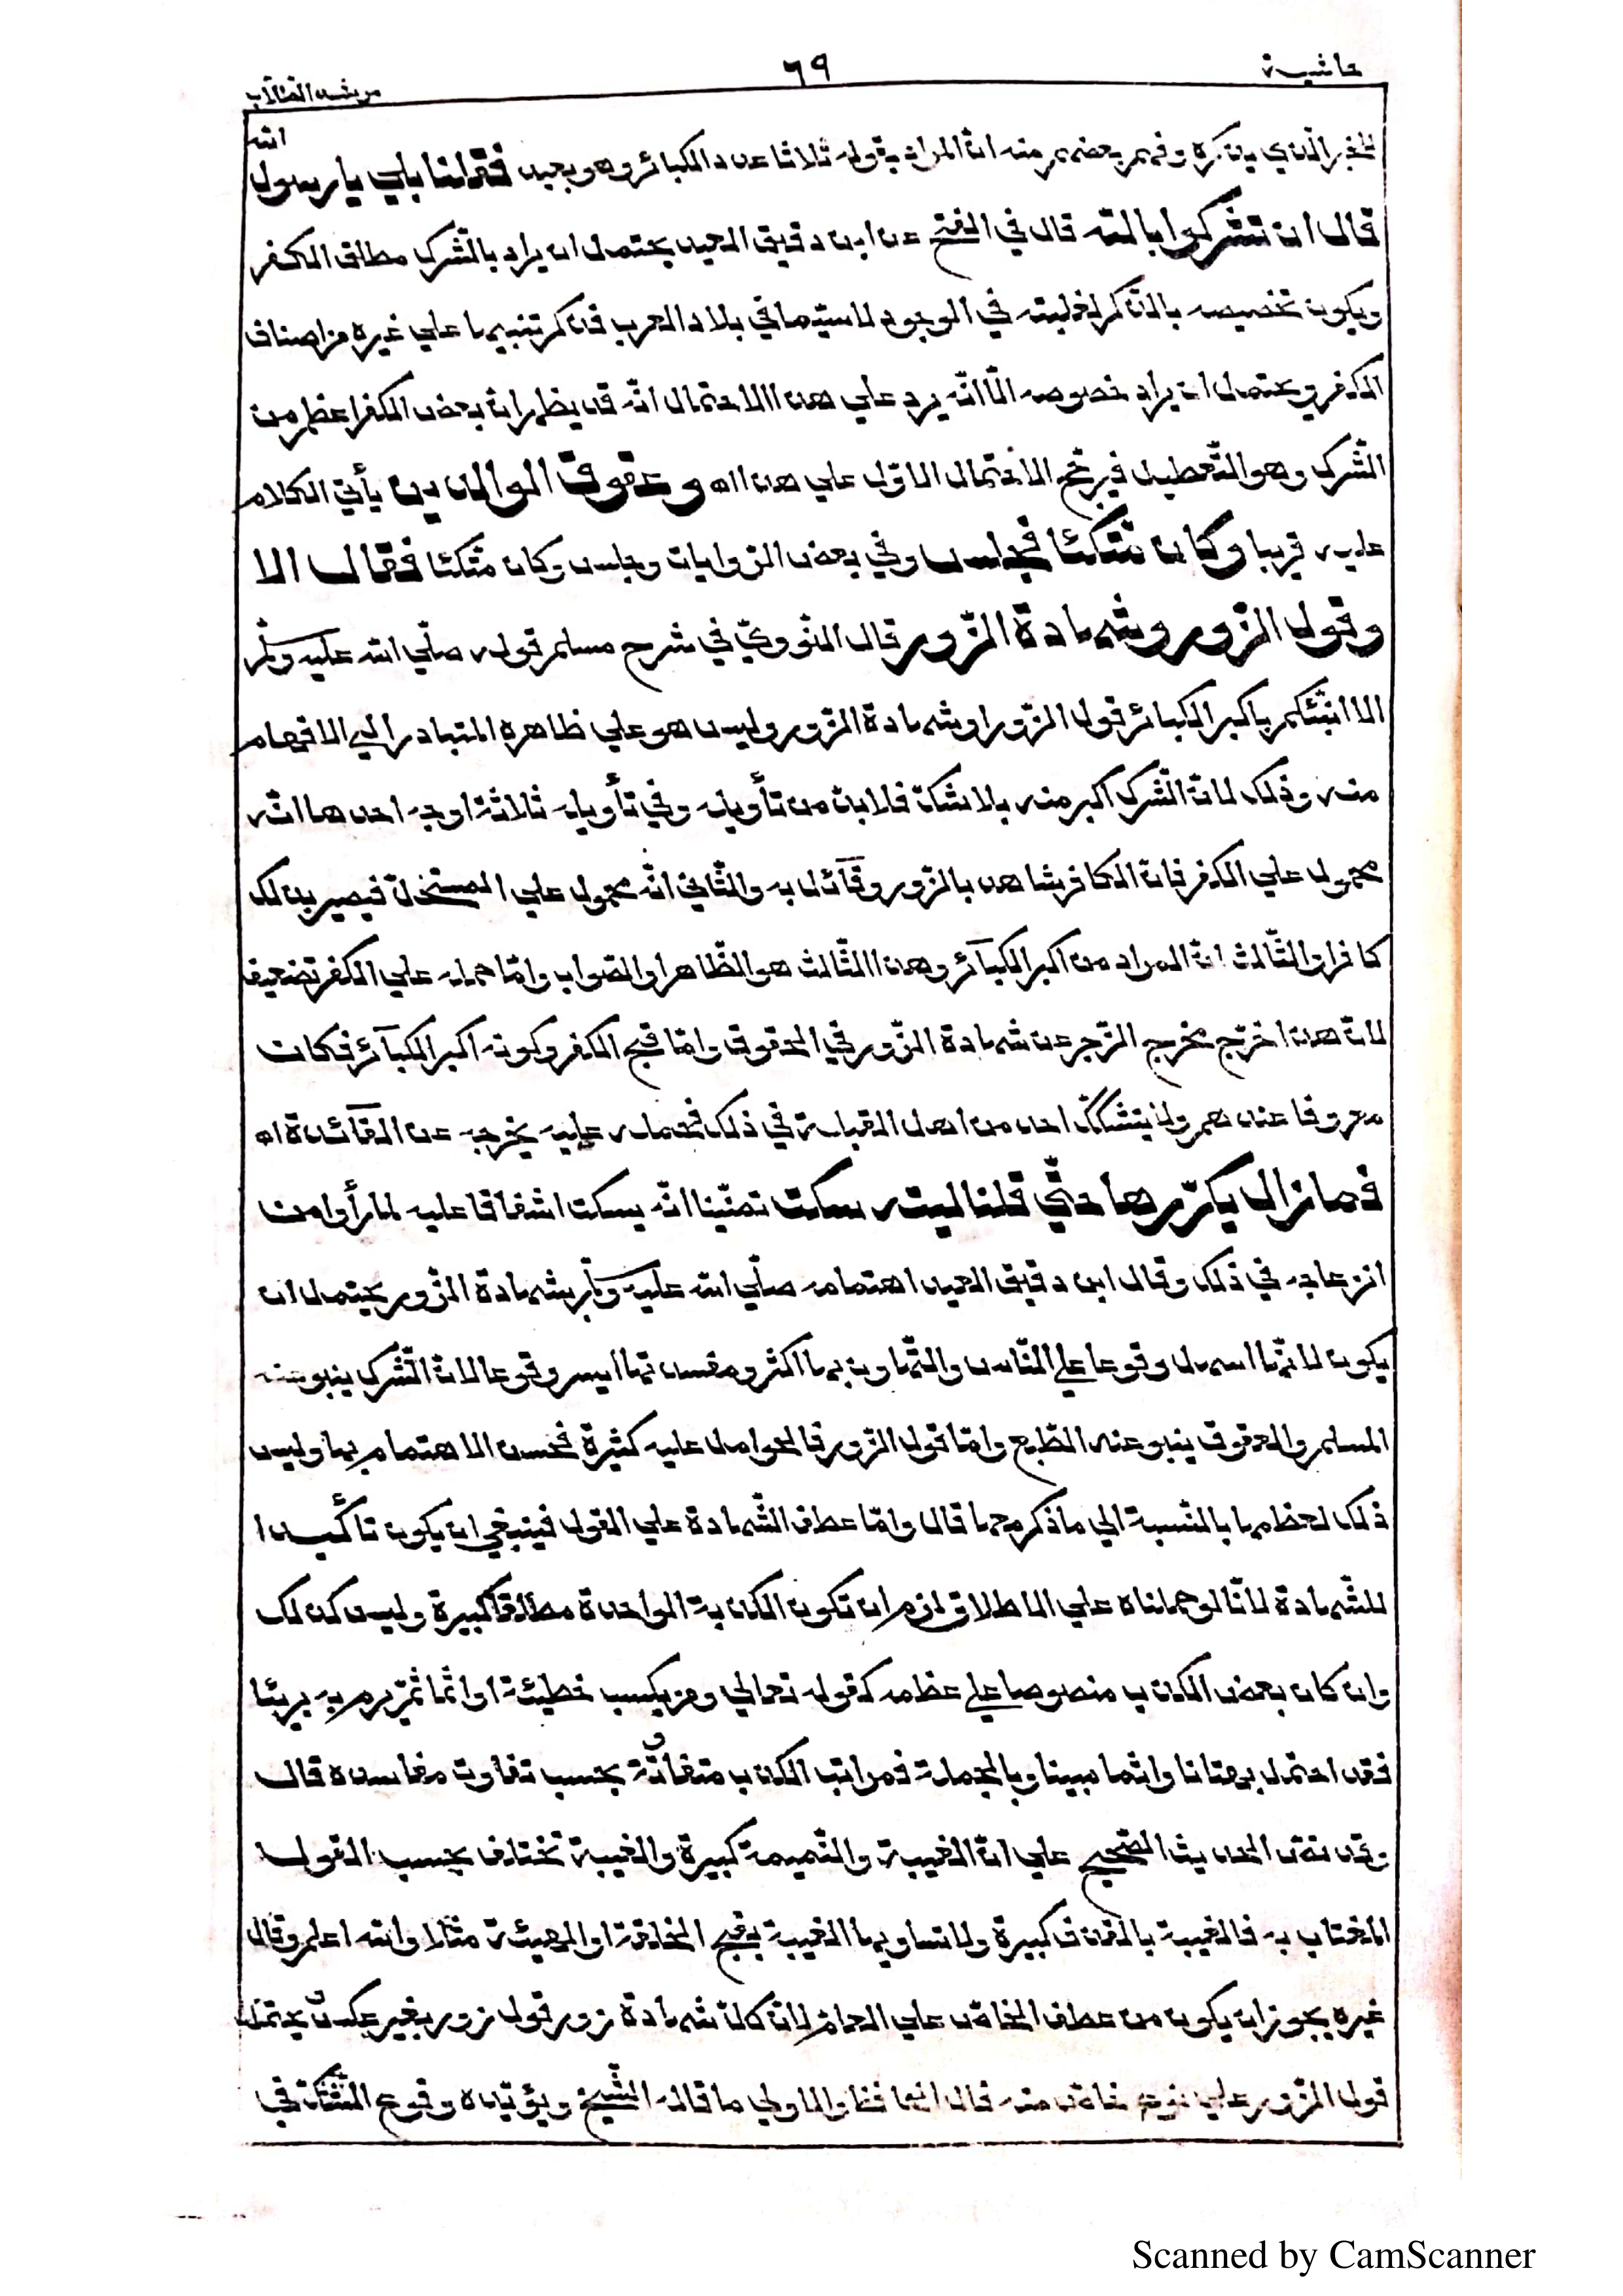 حاشية
٦٩
مرشد الطلاب
للخبر الّذي يذكره وفهم بعضهم منه انّ المراد بقوله ثلاثا عدد الكبائر وهو بعيد فقلنا بلي يا رسول الله
قال ان تشركوا بالله قال في الفتح عن ابن دقيق العيد يحتمل ان يراد بالشّرك مطلق الكفر
ويكون تخصيصه بالذّكر لغلبته في الوجود لا سيّما في بلاد العرب فذكر تنبيها علي غيره من اصناف
الكفر ويحتمل ان يراد خصوصه الّا انّه يرد علي هذا الاحتمال انّه قد يظهر انّ بعض الكفر اعظم من
الشّرك وهو التّعطيل فيرجّح الاحتمال الاوّل علي هذا اه وعقوق الوالدين يأتي الكلام
عليه قريبا وكان متّكئا فجلس وفي بعض الرّوايات وجلس وكان متّكئا فقال الا
وقول الزّور وشهادة الزّور قال النّوويّ في شرح مسلم قوله صلّي الله عليه وسلّم
الا انبّئكم باكبر الكبائر قول الزّور او شهادة الزّور وليس هو علي ظاهره المتبادر الي الافهام
منه وذلك لانّ الشّرك اكبر منه بلا شكّ فلا بدّ من تأويله وفي تأويله ثلاثة اوجه احدها انّه
محمول علي الكفر فانّ الكافر شاهد بالزّور وقآئل به والثّاني انّه محمول علي المستحلّ فيصير بذلك
كافرا والثّالث انّ المراد من اكبر الكبآئر وهذا الثّالث هو الظّاهر او الصّواب وامّا حمله علي الكفر تضعيف
لانّ هذا خرّج مخرج الزّجر عن شهادة الزّور في الحقوق وامّا قبح الكفر وكونه اكبر الكبآئر فكان
معروفا عندهم ولا يتشكّك احد من اهل القبلة في ذلك فحمله عليه يخرجه عن الفآئدة اه
فما زال يكرّرها حتّي قلنا ليته سكت تمنّينا انّه يسكت اشفاقا عليه لما رأوا من
انزعاجه في ذلك وقال ابن دقيق العيد اهتمامه صلّي الله عليه وسلّم بشهادة الزّور يحتمل ان
يكون لانّها اسهل وقوعا علي النّاس والتّهاون بها اكثر ومفسدتها ايسر وقوعا لانّ الشّرك ينبو عنه
المسلم والعقوق ينبو عنه الطّبع وامّا قول الزّور فالحوامل عليه كثيرة فحسن الاهتمام بها وليس
ذلك لعظمها بالنّسبة الي ما ذكر معها قال وامّا عطف الشّهادة علي القول فينبغي ان يكون تأكيدا
للشّهادة لانّا لو حملناه علي الاطلاق لزم ان تكون الكذبة الواحدة مطلقا كبيرة وليس كذلك
وان كان بعض الكذب منصوصا علي عظمه كقوله تعالي ومن يكسب خطيئة او اثما ثمّ يرم به بريئا
فقد احتمل بهتانا واثما مبينا وبالجملة فمراتب الكذب متفاوتة بحسب تفاوت مفاسده قال
وقد نصّ الحديث الصّحيح علي انّ الغيبة والنّميمة كبيرة والغيبة تختلف بحسب القول
المغتاب به فالغيبة بالقذف كبيرة ولا تساويها الغيبة بقبح الخلقة او الهيئة مثلا والله اعلم وقال
غيره يجوز ان يكون من عطف الخاصّ علي العامّ لانّ كلّ شهادة زور قول زور بغير عكس ويحتمل
قول الزّور علي نوع خاصّ منه قال الحافظ والاولي ما قاله الشّيخ ويؤيّده وقوع الشّكّ في
Scanned by CamScanner